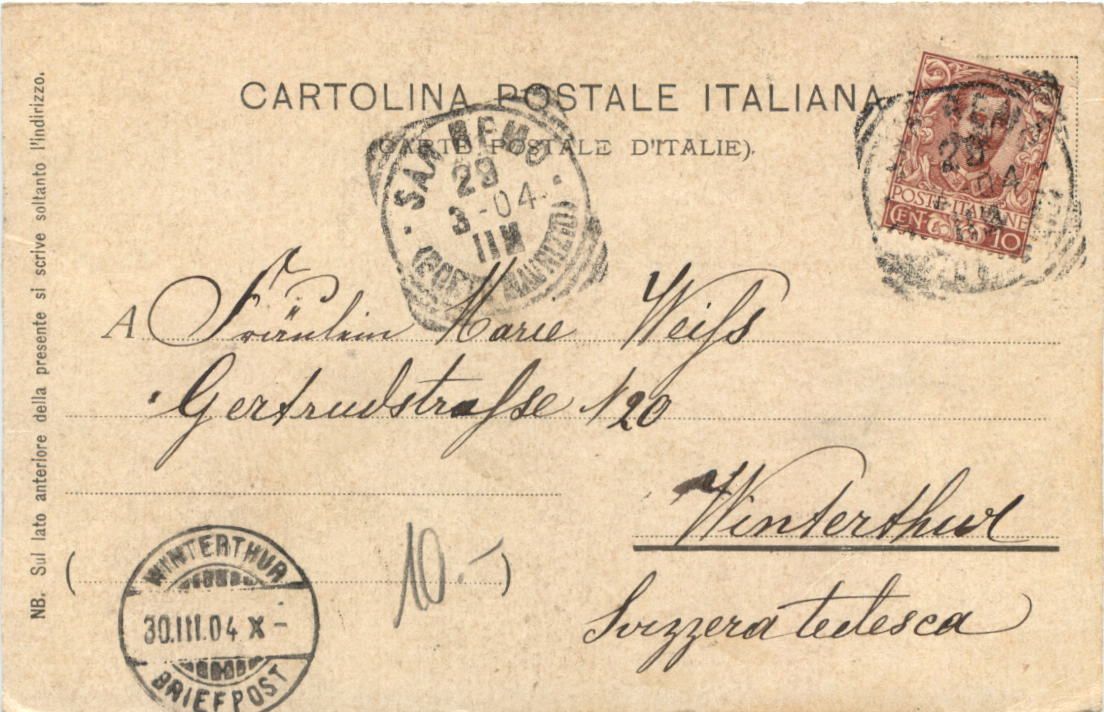 CARTOLINA POSTALE ITALIANA
(CARTE POSTALE D'ITALIE).
SAN REMO
29
3-04
11M
(PORTO MAURIZIO)
29
04
POSTE ITALIANE
CENT. 10
A Fräulein Marie Weiſs
Gertrudstraſse N 20
Winterthur
Svizzera tedesca
( )
10.-
WINTERTHUR
30.III.04 X-
BRIEFPOST
NB. Sul lato anteriore della presente si scrive soltanto l'indirizzo.